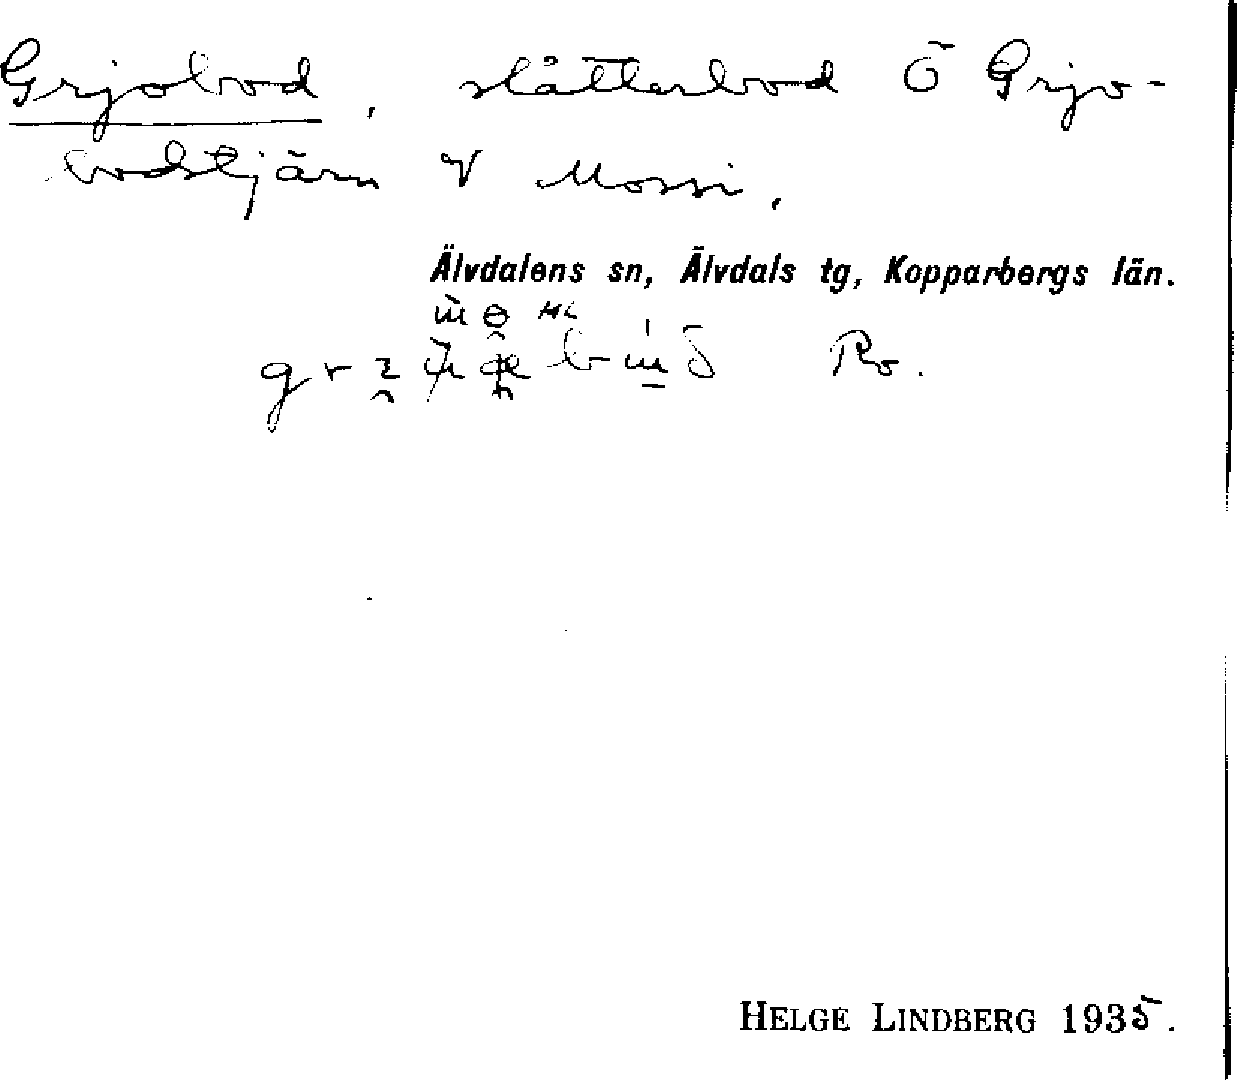 Grjobod, slåtterbod Ö Grjo-
bodstjärn V Mossi.
Älvdalens sn, Älvdals tg, Kopparbergs län.
Ro.
HELGE LINDBERG 1935.